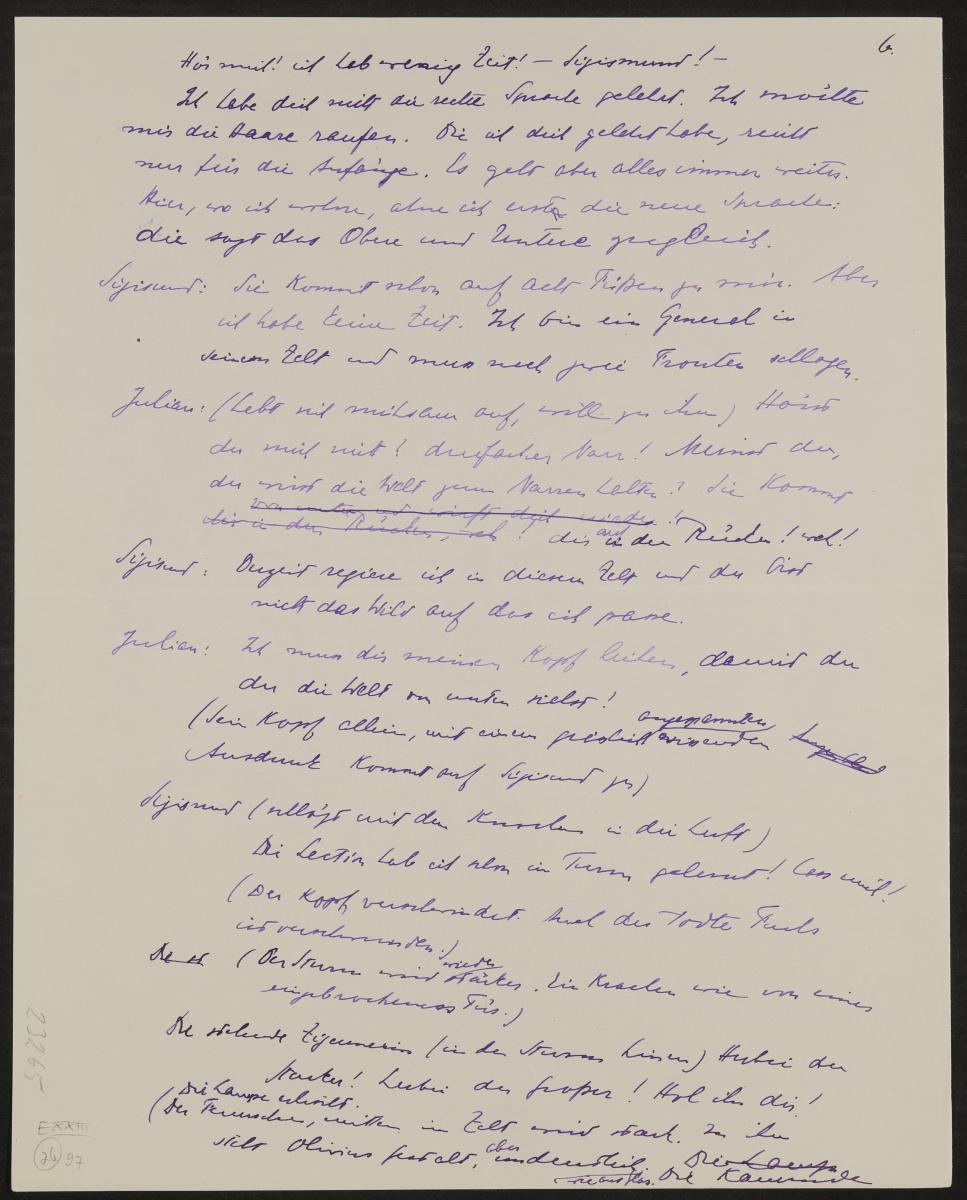 6.
Hör mich! ich hab wenig Zeit! – Sigismund! –
Ich habe dich nicht die rechte Sprache gelehrt. Ich möchte
mir die Haare raufen. Die ich dich gelehrt habe, reicht
nur für die Anfänge. Es geht aber alles immer weiter.
Hier, wo ich wohne, ahne ich erst die neue Sprache:
die sagt das Obere und Untere zugleich.
Sigismund: Sie kommt schon auf acht Füßen zu mir. Aber
ich habe keine Zeit. Ich bin ein General in
seinem Zelt und muss nach zwei Fronten schlagen.
Julian: (hebt sich mühsam auf, will zu ihm) Hörst
du mich nicht! dreifacher Narr! Meinst du,
du wirst die Welt zum Narren halten? Sie kommt
von unten und wirft dich nieder!
dir in den Rücken, weh! dir in den Rücken! weh!
auf
Sigismund: Derzeit regiere ich in diesem Zelt und du bist
nicht das Wild auf das ich passe.
Julian: Ich muss dir meinen Kopf leihen, damit du
du die Welt von unten siehst!
angespannten
(Sein Kopf allein, mit einem wissenden
Ausdruck kommt auf Sigismund zu)
Sigismund (schlägt mit dem Knochen in die Luft)
Die Lection hab ich schon im Turm gelernt! Lass mich!
(Der Kopf verschwindet. Auch der todte Fuchs
ist verschwunden.)
wieder
(Der Sturm wird stärker. Ein Krachen wie von einer
eingebrochenen Tür.)
Die Zigeunerin (in den Sturm hinein) Herbei du
Starker! herbei du Großer! Hol ihn dir!
Die Lampe erlischt.
(Der mitten im Zelt wird stark. In ihm
steht Olivier's Gestalt, aber undeutlich. Die Lampe
Die
23265
E XXIII
26 97